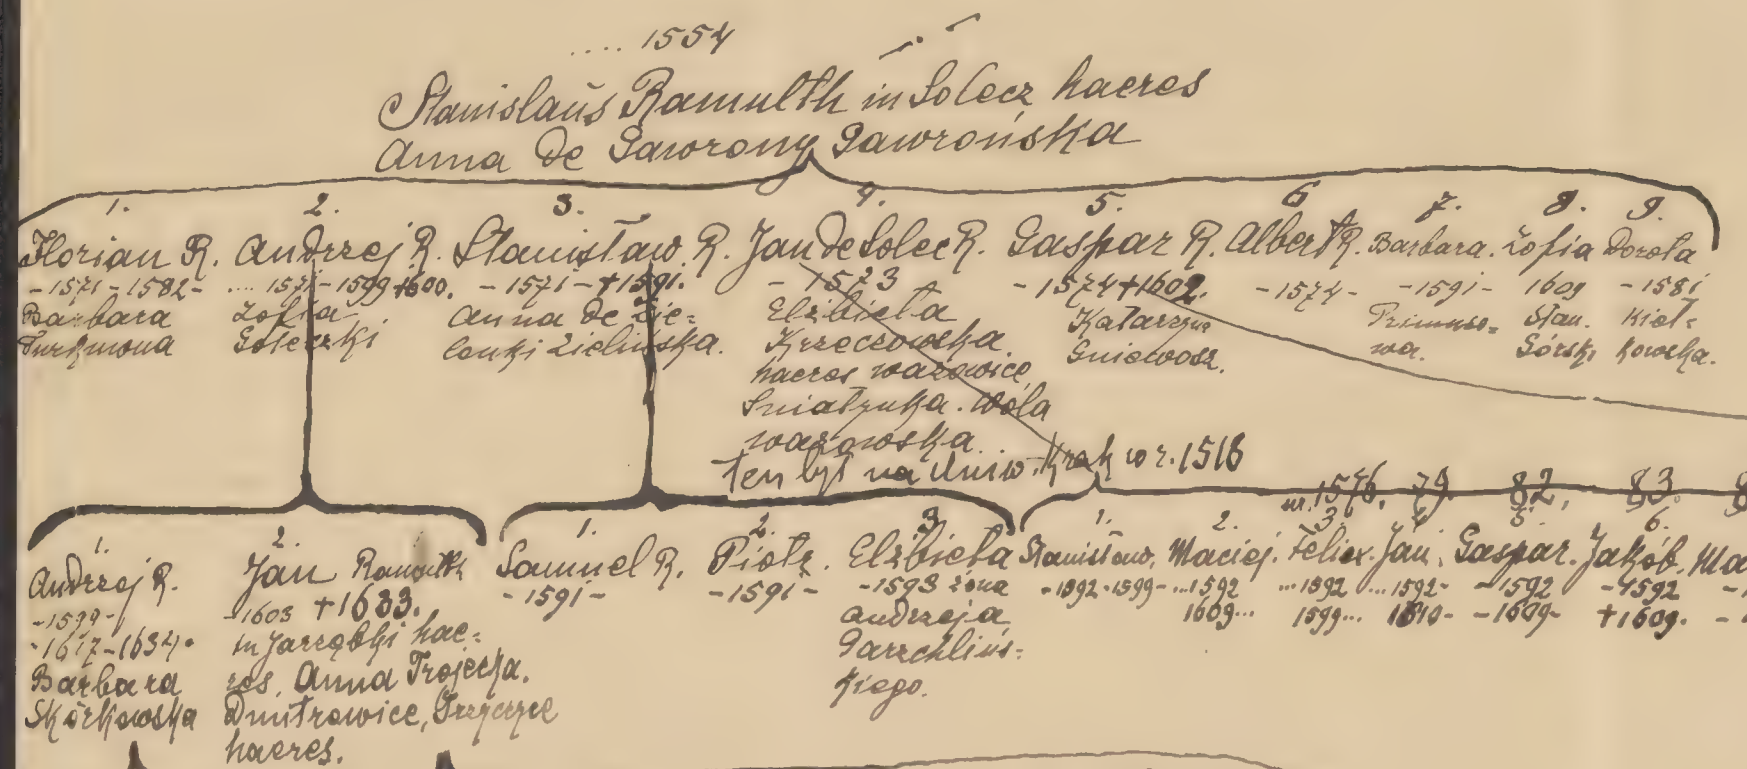 .... 1554
Stanislaus Ramulth in Solecz haeres
Anna de Gawrony Gawrońska
1.
Florian R.
- 1571 - 1582 -
Barbara
2.
Andrzej R.
.... 1571 - 1599 +1600.
Zofia
3.
Stanisław R.
- 1571 - +1591.
Anna de Zie=
lenki Zielińska.
4.
Jan de Solec R.
- 1573
Elżbieta
Krzeczowska
haeres
Wola
ten był na Uniw. Krak w r. 1518
5.
Gaspar R.
- 1574 +1602.
Katarzyna
Gniewosz.
6
Albert R.
- 1574 -
7.
Barbara.
- 1591 -
8.
Zofia
1609
Stan.
Górski
9.
Dorota
- 1581
Kieł=
kowska.
1.
Andrzej R.
- 1599 -
- 1617 - 1634.
Barbara
Skórkowska
2.
Jan Ramułth
- 1603 +1633.
in Jarząbki hae=
res, Anna Trojecka.
Dmitrowice,
haeres.
1.
Samuel R.
- 1591 -
2.
Piotr.
- 1591 -
3.
Elżbieta
- 1593 żona
Andrzeja
Parzchlińs=
kiego.
ur. 1576. 79. 82. 83. 8
1.
Stanisław,
- 1592 - 1599 -
2.
Maciej.
... 1592
1609...
3.
Felix.
... 1592
1599...
4
Jan.
... 1592 -
1610 -
5
Gaspar.
- 1592
- 1609 -
6.
Jakób.
- 1592
+1609.
Ma